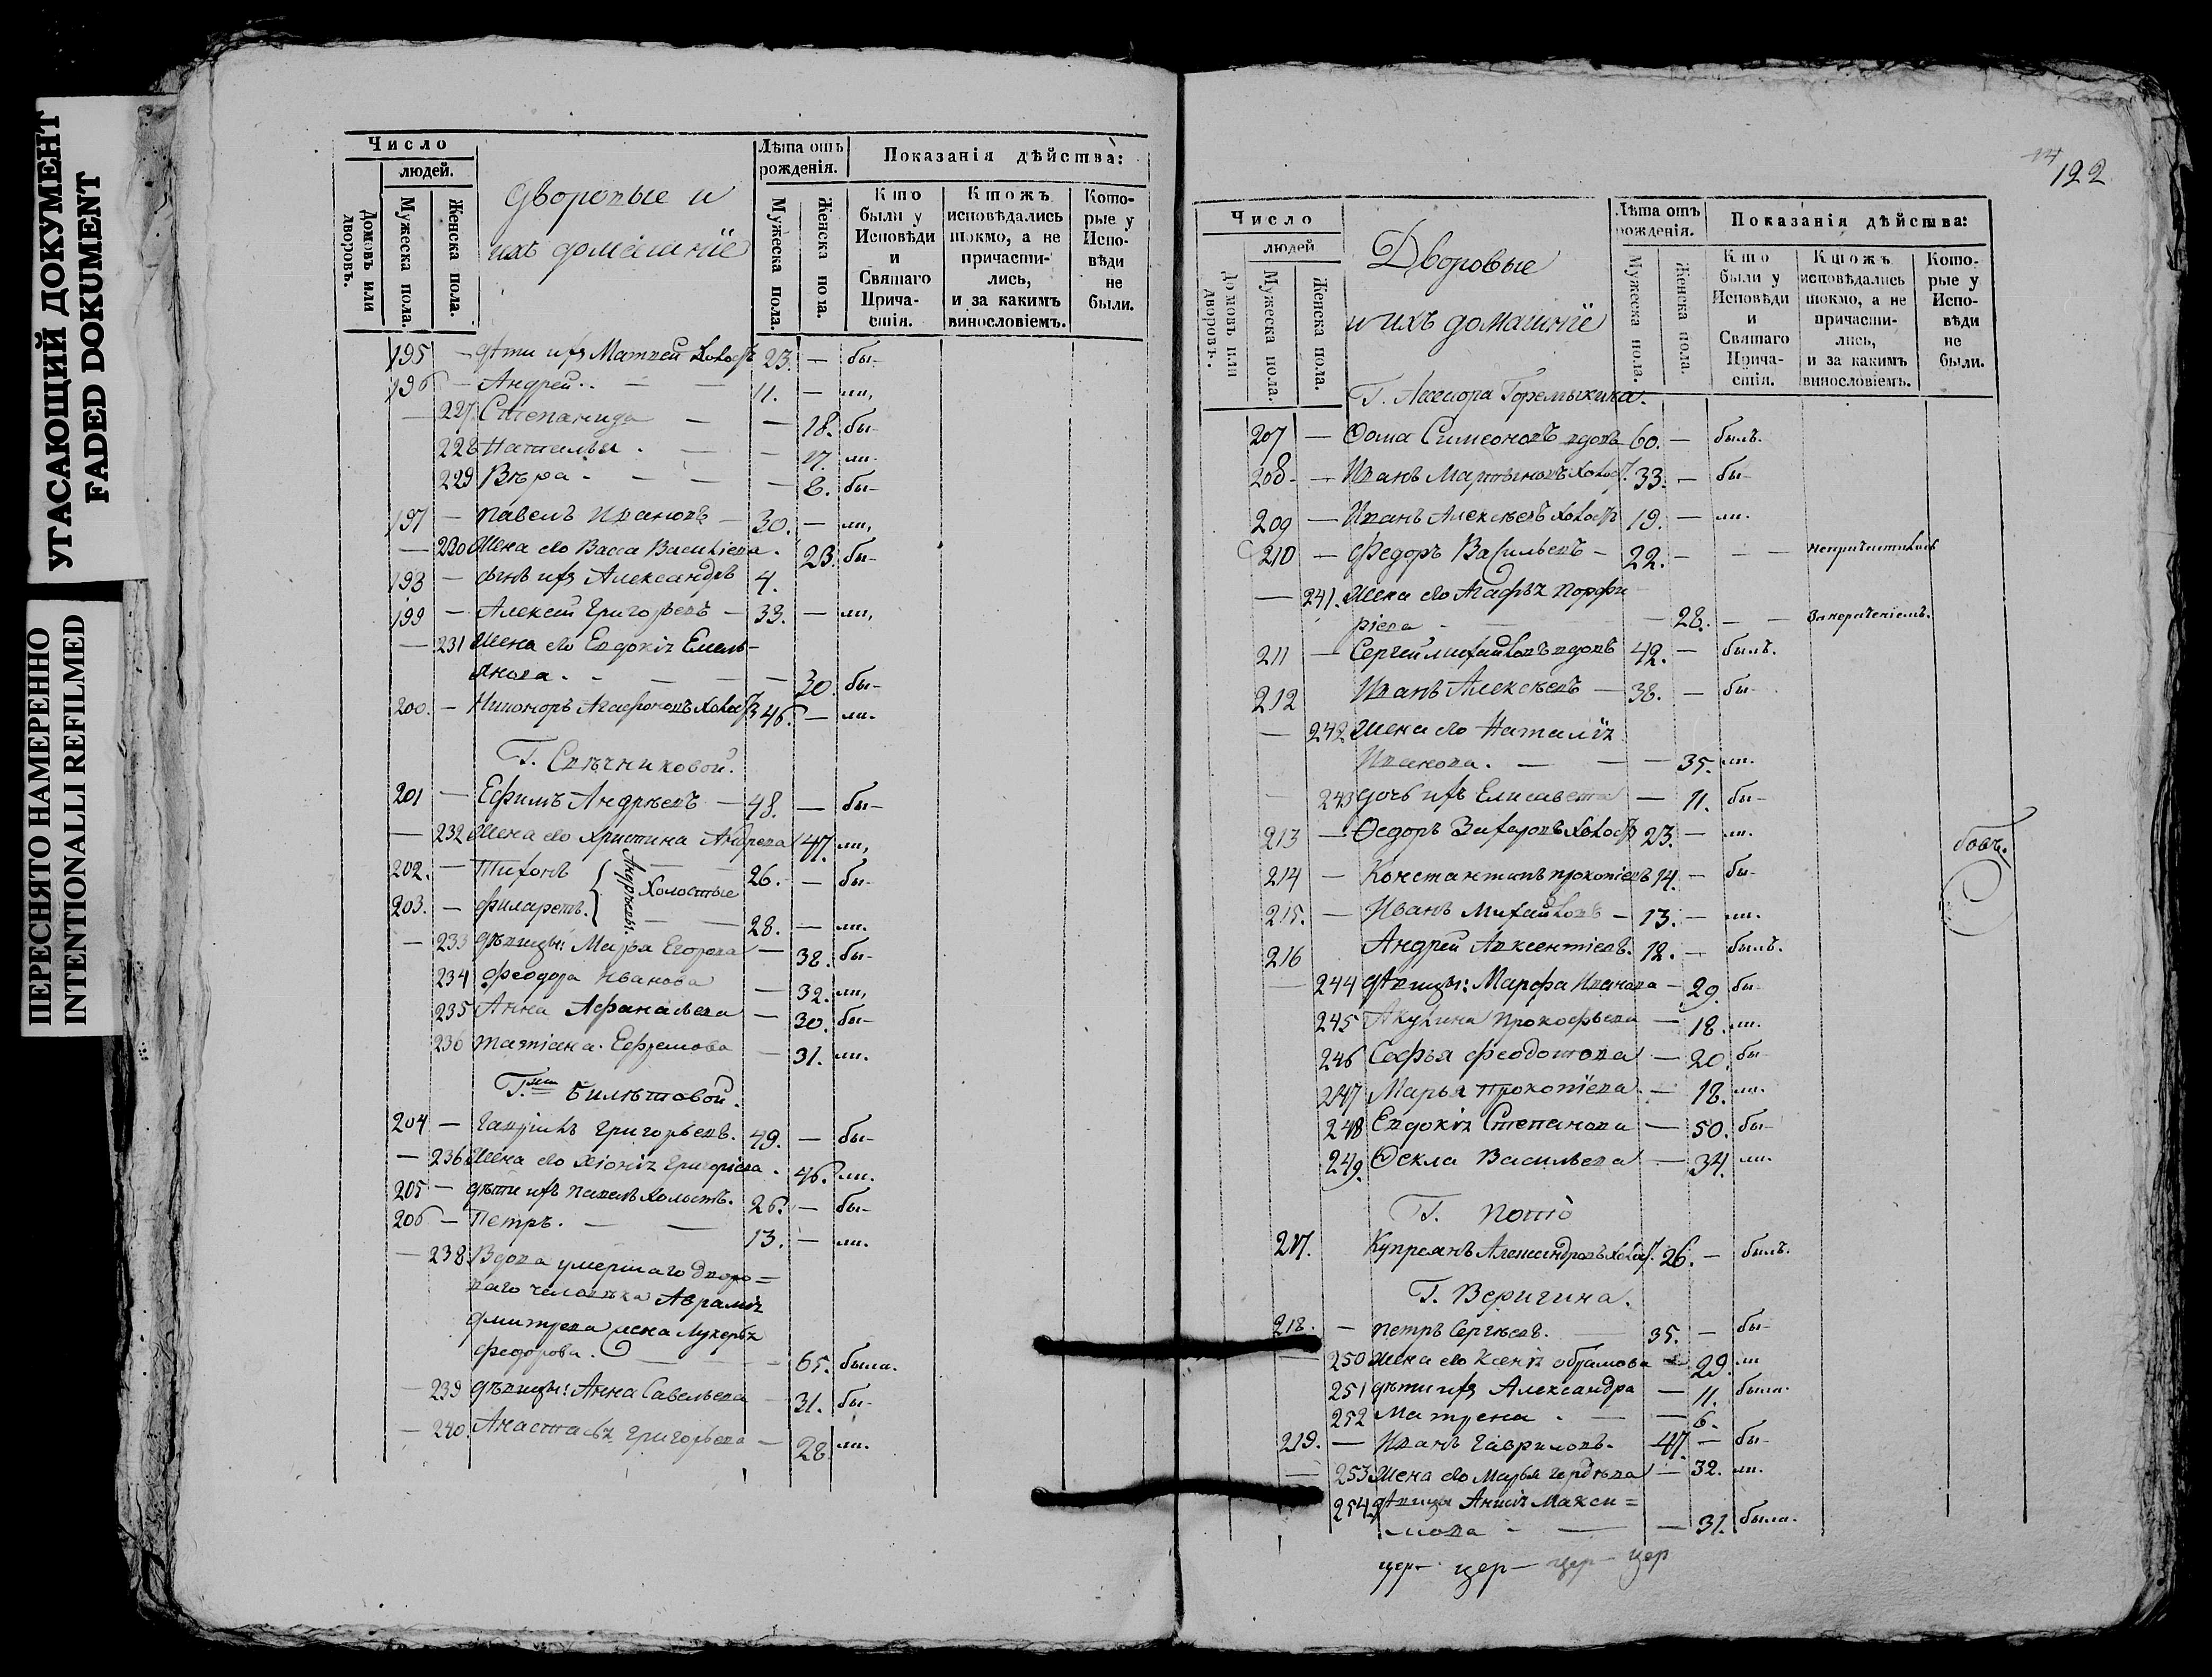 УГАСАЮЩИЙ ДОКУМЕНТ
FADED DOKUMENT
ПЕРЕСНЯТО НАМЕРЕННО
INTENTIONALLI REFILMED
Число
людей.
Домовъ или дворовъ.
Мужеска пола.
Женска пола.
Дворовые и
ихъ домашнїе
Лѣта отъ рожденія.
Мужеска пола.
Женска пола.
Показанія дѣйства:
Кто были у Исповѣди и Святаго Причастія.
Ктожъ исповѣдались токмо, а не причастились, и за какимъ винословіемъ.
Которые у Исповѣди не были.
195 — дѣти ихъ Матвей холостъ 23. — бы-
196 — Андрей. — — 11. — ли,
— 227 Степанида — — 18. бы-
228 Наталья. — — 17. ли.
229 Вѣра - — — — 8. бы-
197 — Павелъ Ивановъ — 30. — ли,
— 230 Жена его Васса Василіева. 23. бы-
198 — сынъ ихъ Александръ 4.
199 — Алексей Григорьевъ — 33. — ли,
— 231 Жена его Евдокія Емель-
янова. — — — 30. бы-
200. — Никоноръ Агафоновъ холостъ 46. — ли.
Г. Свѣчниковой.
201 — Ефимъ Андрѣевъ — 48. — бы-
— 232 Жена его Христина Андрева 47. ли,
202. — Тихонъ { Андрѣевы. Холостые 26. — бы-
203. — Филаретъ. — — 28. — ли.
— 233 дѣвицы: Марья Егорова — 38. бы-
234 Феодора Иванова — 32. ли,
235 Анна Афанасьева — 30. бы-
236 Татіана. Ефремова — 31. ли.
Г.жи Билѣтовой.
204 — Гаврилъ Григорьевъ. 49. — бы-
— 236 Жена его Хіонія Григоріева. 46. ли.
205 — дѣти ихъ Павелъ холостъ. 26. — бы-
206 — Петръ. — — 13. — ли.
— 238 Вдова умершаго дворо=
ваго человѣка Аврамія
Дмитрева жена Лукерья
Федорова. — — 65. была.
— 239 дѣвицы: Анна Савельева 31. бы-
— 240 Анастасія Григорьева — 28. ли.
14
122
Число
людей
Домовъ или дворовъ.
Мужеска пола.
Женска пола.
Дворовые
и ихъ домашнїе
Лѣта отъ рожденія.
Мужеска пола.
Женска пола.
Показанія дѣйства:
Кто были у Исповѣди и Святаго Причастія.
Ктожъ исповѣдались токмо, а не причастились, и за какимъ винословіемъ.
Которые у Исповѣди не были.
Г. Асесора Горемыкина.
207 — Ѳома Симеоновъ вдовъ 60. — былъ.
208 — Иванъ Мартыновъ холост. 33. — бы-
209 — Иванъ Алексѣевъ холостъ 19. — ли.
210 — Федоръ Васильевъ — 22. — — — непричастились
— 241. Жена его Агафья Порфи
ріева — — 28. — — Занераченіемъ.
211 — Сергей михайловъ вдовъ 42. — былъ.
212 Иванъ Алексѣевъ — 38. — бы-
— 242 Жена его Наталїя
Иванова. — — — 35. ли.
— 243 дочь ихъ Елисавета — 11. бы-
213 — Ѳедоръ Захаровъ холостъ 23. — ли.
бовъ.
214 — Константинъ прокопіевъ 14. — бы-
215. — Иванъ Михайловъ — 13. — ли.
216 Андрей Авксентіевъ. 12. — былъ.
— 244 дѣвицы: Марфа Иванова — 29. бы-
245 Акулина Прокофьева — 18. ли.
246 Софья Феодотова — 20. бы-
247 Марья Прокопїева — 18. ли.
248 Евдокія Степанова — 50. бы-
249. Ѳекла Васильева — 34. ли.
Г. Потто
217. Купреянъ Александровъ холост. 26. — былъ.
Г. Веригина.
218. — Петръ Сергѣевъ. — 35. — бы-
— 250 Жена его Ксенія Абрамова — 29. ли
251 дѣти ихъ Александра — 11. была.
252 Матрена. — — 6.
219. — Иванъ Гавриловъ. 47. — бы-
— 253 Жена его Марья — 32. ли.
254 дѣвица Анисія Макси=
мова - — — 31. была.
цер- цер- цер- цер